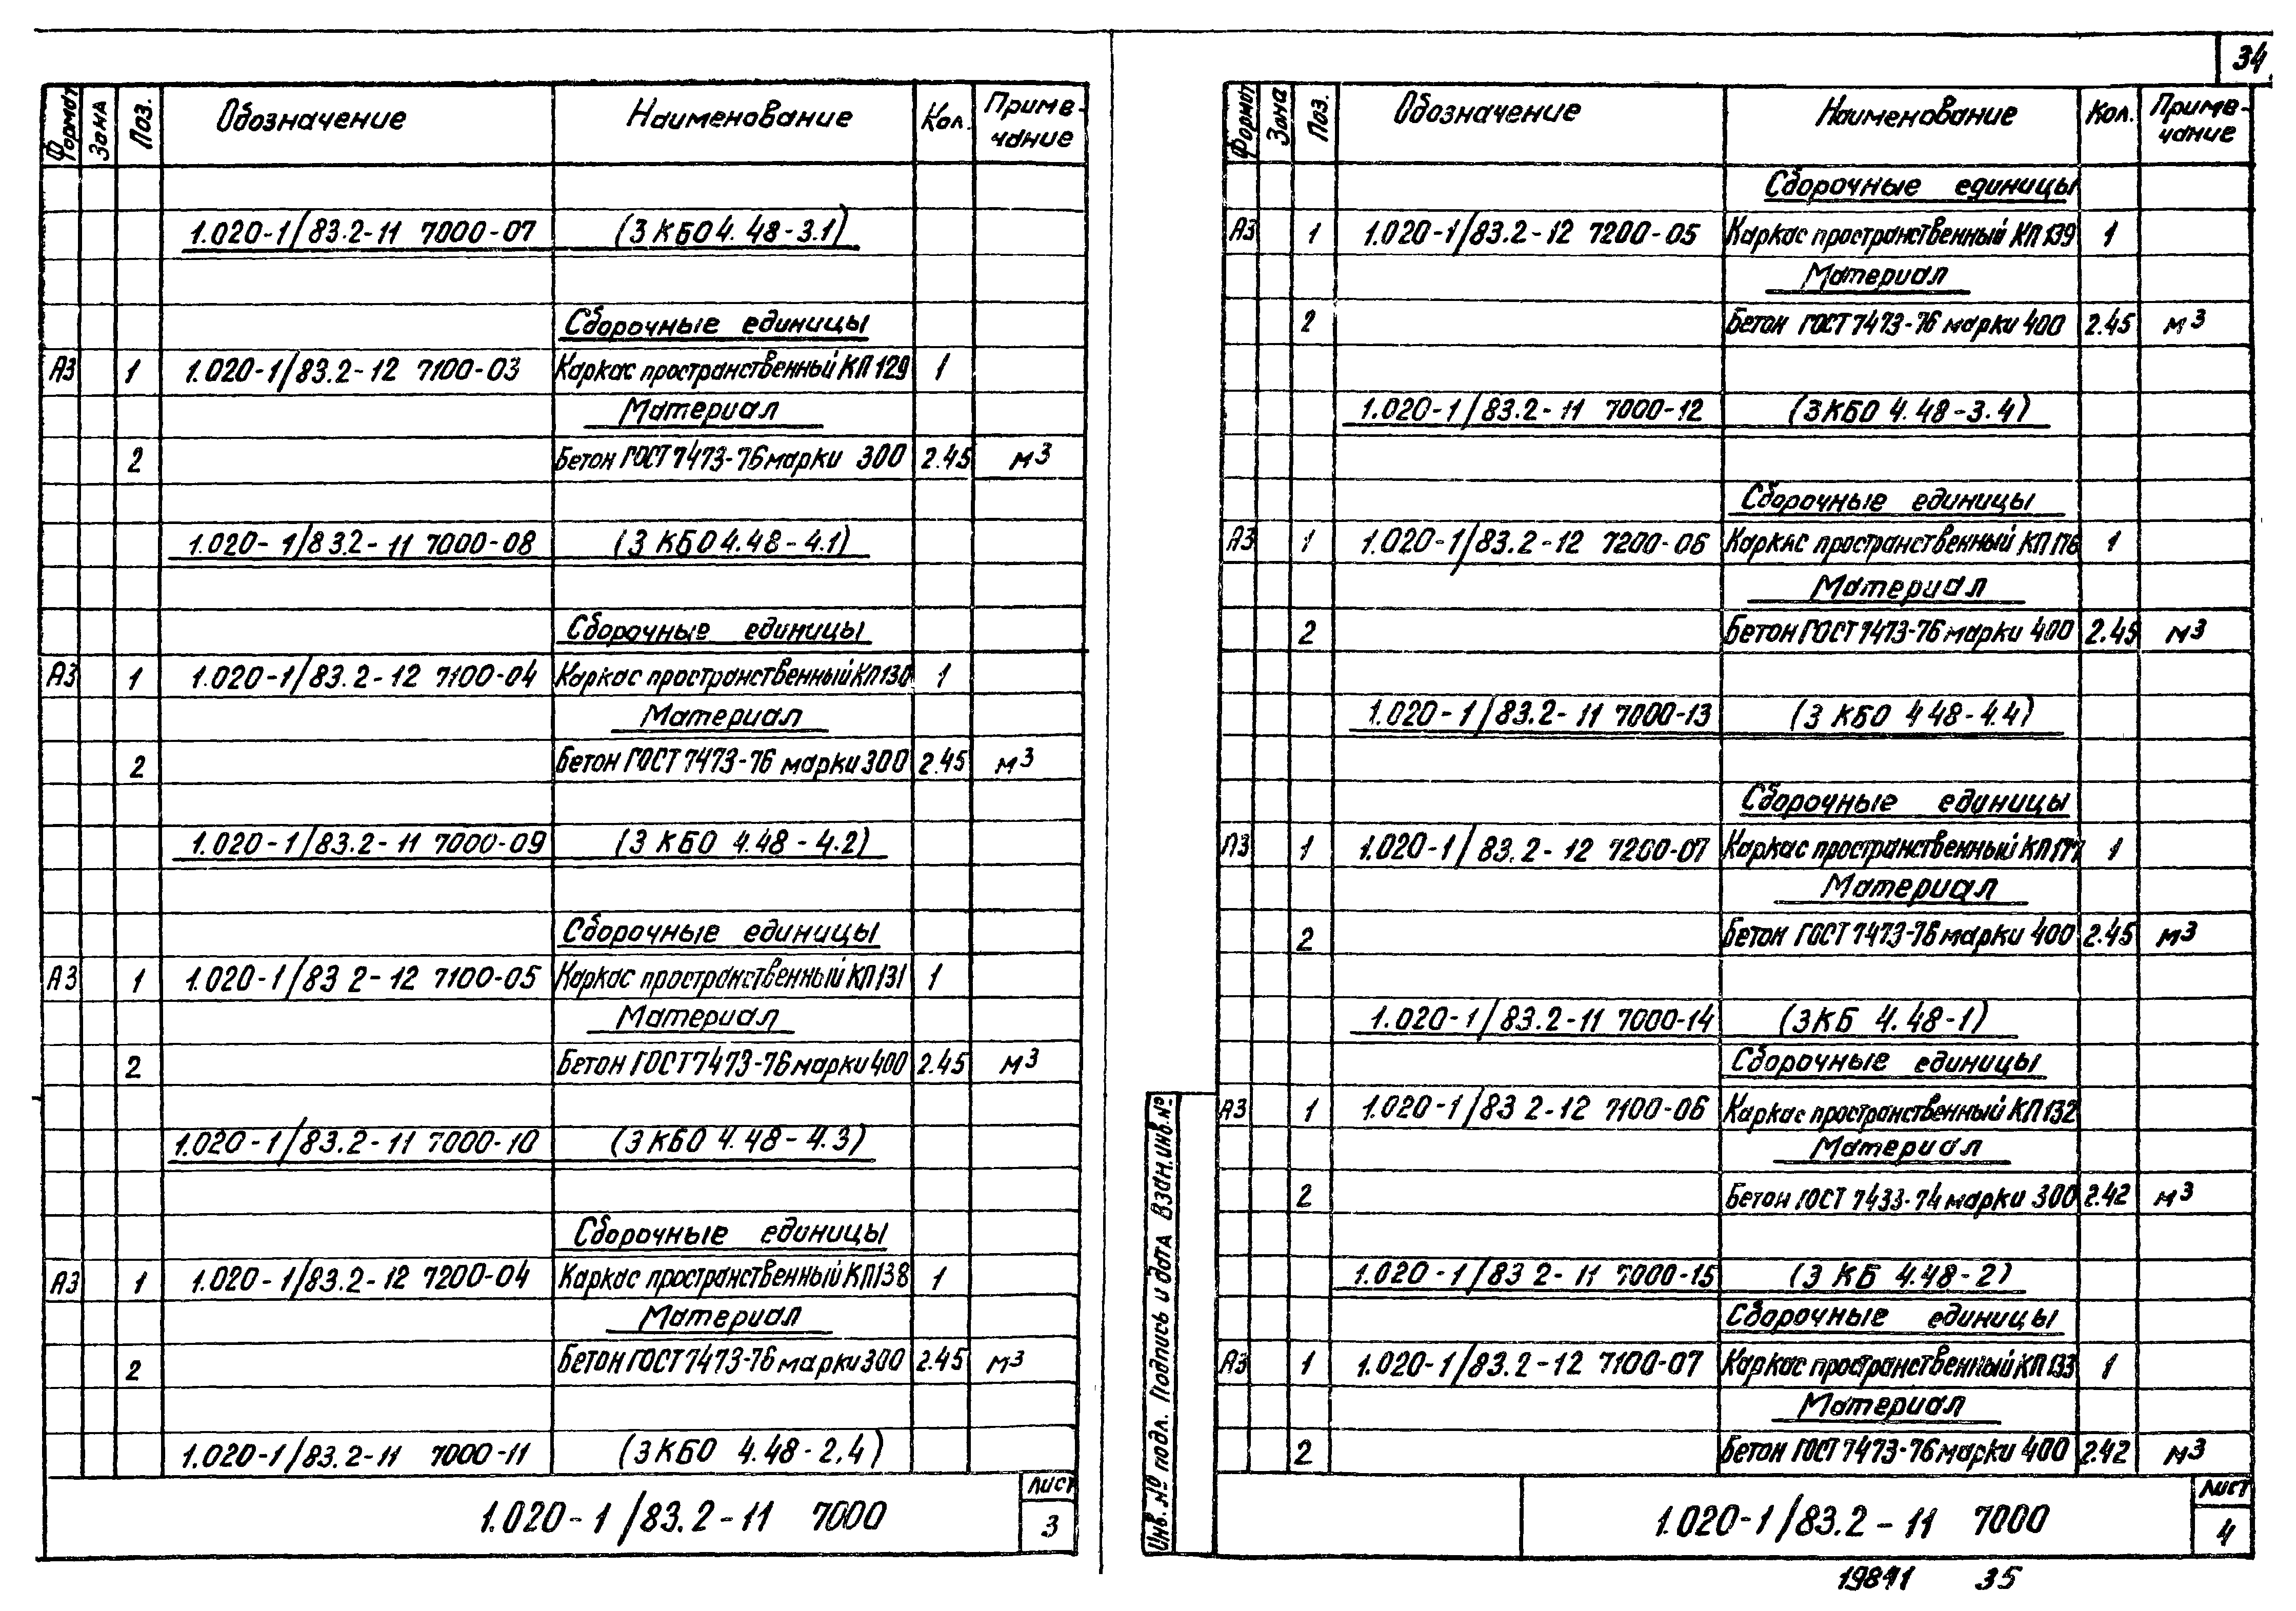 34
Формат Зона Поз. Обозначение Наименование Кол. Приме-
чание
1.020-1/83.2-11 7000-07 (3 КБО 4.48-3.1)
Сборочные единицы
А3 1 1.020-1/83.2-12 7100-03 Каркас пространственный КП 129 1
Материал
2 Бетон ГОСТ 7473-76 марки 300 2.45 м3
1.020-1/83.2-11 7000-08 (3 КБО 4.48-4.1)
Сборочные единицы
А3 1 1.020-1/83.2-12 7100-04 Каркас пространственный КП 130 1
Материал
2 Бетон ГОСТ 7473-76 марки 300 2.45 м3
1.020-1/83.2-11 7000-09 (3 КБО 4.48-4.2)
Сборочные единицы
А3 1 1.020-1/83 2-12 7100-05 Каркас пространственный КП 131 1
Материал
2 Бетон ГОСТ 7473-76 марки 400 2.45 м3
1.020-1/83.2-11 7000-10 (3 КБО 4.48-4.3)
Сборочные единицы
А3 1 1.020-1/83.2-12 7200-04 Каркас пространственный КП 138 1
Материал
2 Бетон ГОСТ 7473-76 марки 300 2.45 м3
1.020-1/83.2-11 7000-11 (3 КБО 4.48-2.4)
1.020-1/83.2-11 7000
лист
3
Формат Зона Поз. Обозначение Наименование Кол. Приме-
чание
Сборочные единицы
А3 1 1.020-1/83.2-12 7200-05 Каркас пространственный КП 139 1
Материал
2 Бетон ГОСТ 7473-76 марки 400 2.45 м3
1.020-1/83.2-11 7000-12 (3 КБО 4.48-3.4)
Сборочные единицы
А3 1 1.020-1/83.2-12 7200-06 Каркас пространственный КП 176 1
Материал
2 Бетон ГОСТ 7473-76 марки 400 2.45 м3
1.020-1/83.2-11 7000-13 (3 КБО 4 48-4.4)
Сборочные единицы
А3 1 1.020-1/83.2-12 7200-07 Каркас пространственный КП 177 1
Материал
2 Бетон ГОСТ 7473-76 марки 400 2.45 м3
1.020-1/83.2-11 7000-14 (3 КБ 4.48-1)
Сборочные единицы
А3 1 1.020-1/83 2-12 7100-06 Каркас пространственный КП 132
Материал
2 Бетон ГОСТ 7433-74 марки 300 2.42 м3
1.020-1/83 2-11 7000-15 (3 КБ 4.48-2)
Сборочные единицы
А3 1 1.020-1/83.2-12 7100-07 Каркас пространственный КП 133 1
Материал
2 Бетон ГОСТ 7473-76 марки 400 2.42 м3
Инв. № подл. Подпись и дата Взам. инв. №
1.020-1/83.2-11 7000
лист
4
35